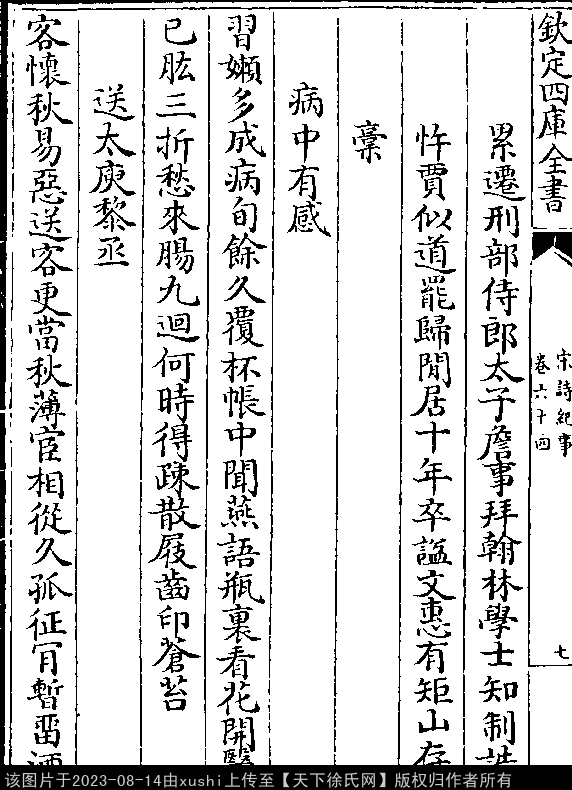 欽定四庫全書
宋詩紀事
卷六十四
七
累遷刑部侍郎太子詹事拜翰林學士知制誥
忤賈似道罷歸閒居十年卒謚文惠有矩山存
稾
病中有感
習嬾多成病旬餘久覆杯帳中聞燕語瓶裏看花開醫
已肱三折愁來腸九迴何時得疎散屐齒印蒼苔
送太庾黎丞
客懷秋易惡送客更當秋薄宦相從久孤征肎暫畱酒
该图片于2023-08-14由xushi上传至【天下徐氏网】版权归作者所有